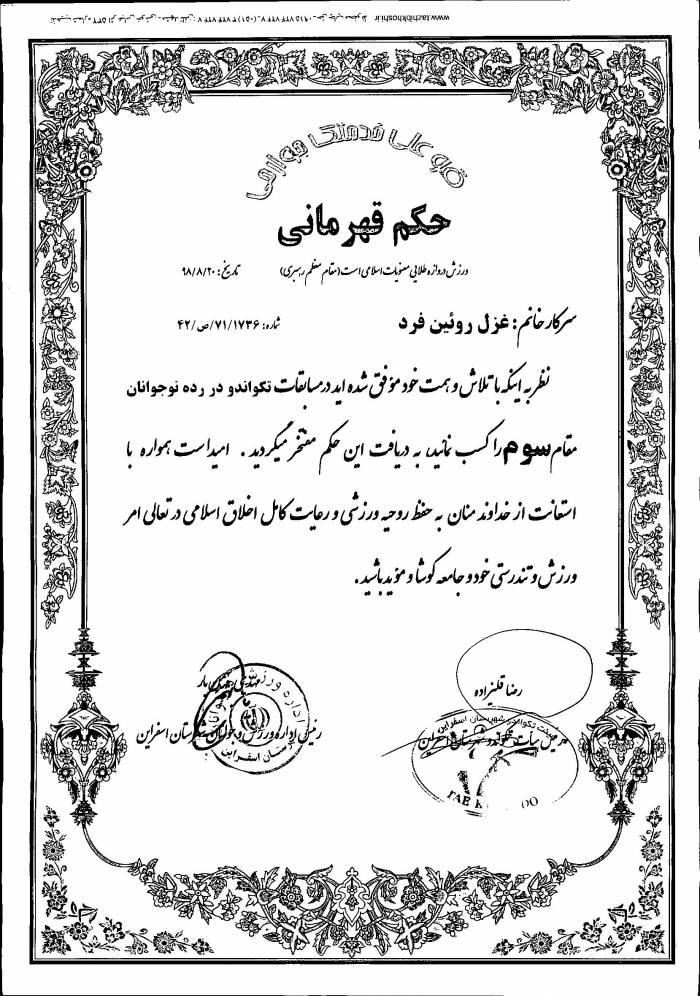 قو علی خدمتک جوارحی
حکم قهرمانی
ورزش دروازه طلایی معنویات اسلامی است (مقام معظم رهبری)
تاریخ: ۹۸/۸/۲۰
سرکار خانم: غزل روئین فرد
شماره: ۷۱/۱۷۳۶/ص/۴۲
نظر به اینکه با تلاش و همت خود موفق شده اید در مسابقات تکواندو در رده نوجوانان
مقام سوم را کسب نمائید، به دریافت این حکم مفتخر میگردید . امید است همواره با
استعانت از خداوند منان به حفظ روحیه ورزشی و رعایت کامل اخلاق اسلامی در تعالی امر
ورزش و تندرستی خود و جامعه کوشا و مؤید باشید.
رضا قلیزاده
رئیس هیأت تکواندو شهرستان اسفراین
رئیس اداره ورزش و جوانان شهرستان اسفراین
هیئت تکواندو شهرستان اسفراین
TAE K DO
www.tazhibkhoshnevis.ir